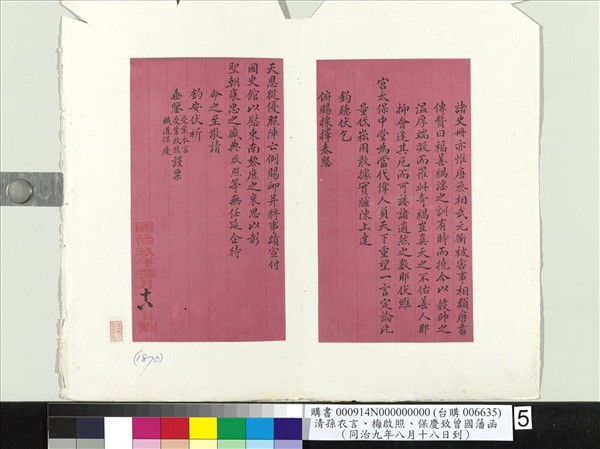 諸史冊亦惟唐丞相武元衡被害事相類唐書
傳贊曰福善禍淫之訓有時而撓今以穀帥之
溫厚端凝而罹此奇禍豈真天之不佑善人耶
抑會逢其厄而可諉諸適然之數耶伏維
宮太保中堂為當代偉人負天下重望一言定論比
量低崧用敢據實臚陳上達
鈞聽伏乞
俯賜採擇奏懇
天恩從優照陣亡例賜卹并將事蹟宣付
國史館以慰東南黎庶之哀思以彰
聖朝褒忠之盛典啟照等無任延企待
命之至敬請
鈞安伏祈
垂鑒
受業衣言
受業啟照
職道保慶
謹稟
十八
(1870)
購書 000914N000000000 (台購 006635)
清孫衣言、梅啟照、保慶致曾國藩函
（同治九年八月十八日到）
5